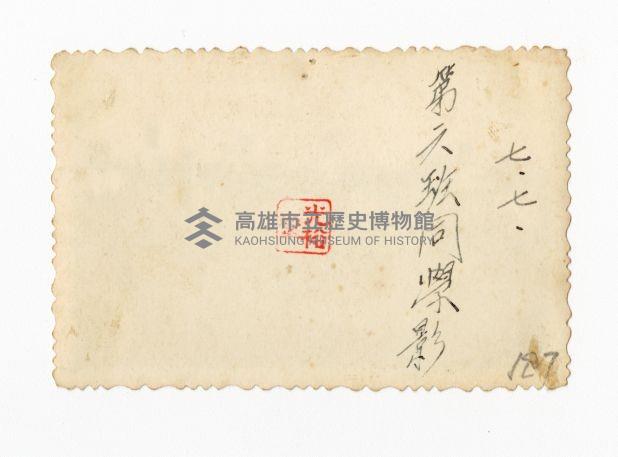 七.七.
第六班同學影
光裕
高雄市立歷史博物館
KAOHSIUNG MUSEUM OF HISTORY
127